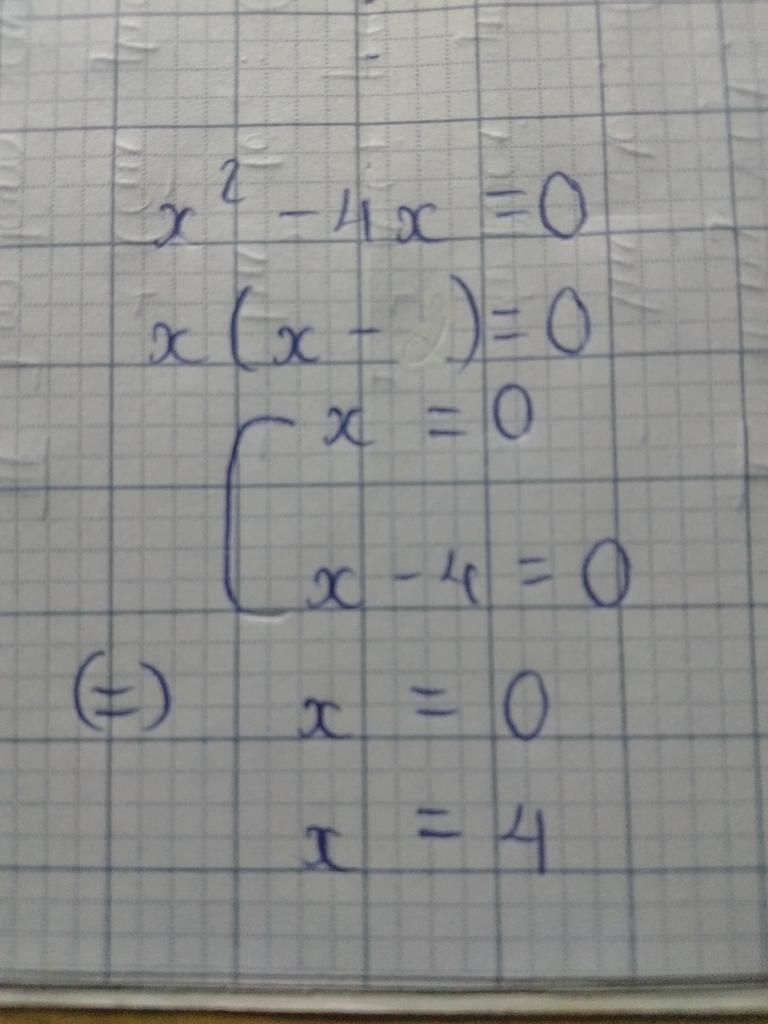 x² - 4x = 0
x(x - ) = 0
x = 0
x - 4 = 0
(=) x = 0
x = 4